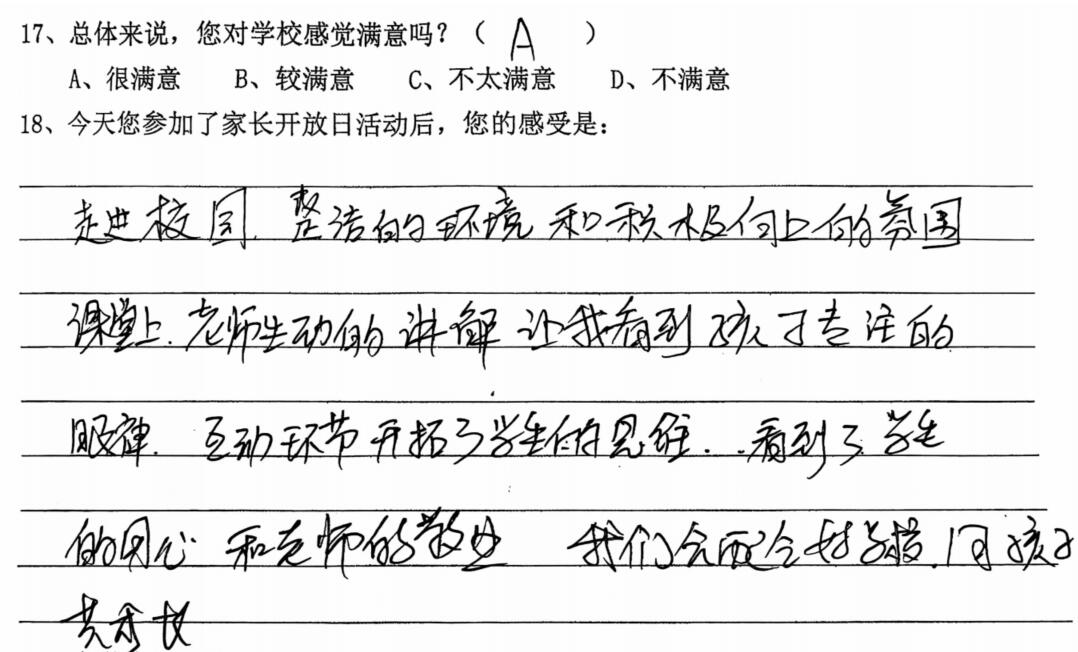 17、总体来说，您对学校感觉满意吗？（ A ）
A、很满意 B、较满意 C、不太满意 D、不满意
18、今天您参加了家长开放日活动后，您的感受是：
走进校园. 整洁的环境 和积极向上的氛围
课堂上. 老师生动的讲解 让我看到孩子专注的
眼神. 互动环节开拓了学生的思维. 看到了学生
的用心 和老师的敬业 我们会配合好学校. 同孩子
共成长